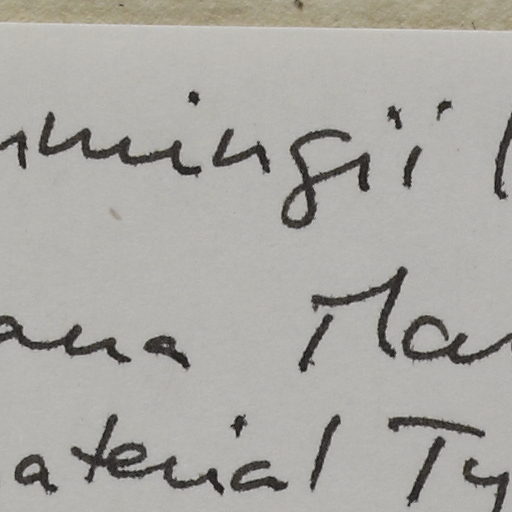 mmingii
ana Mar
aterial Ty